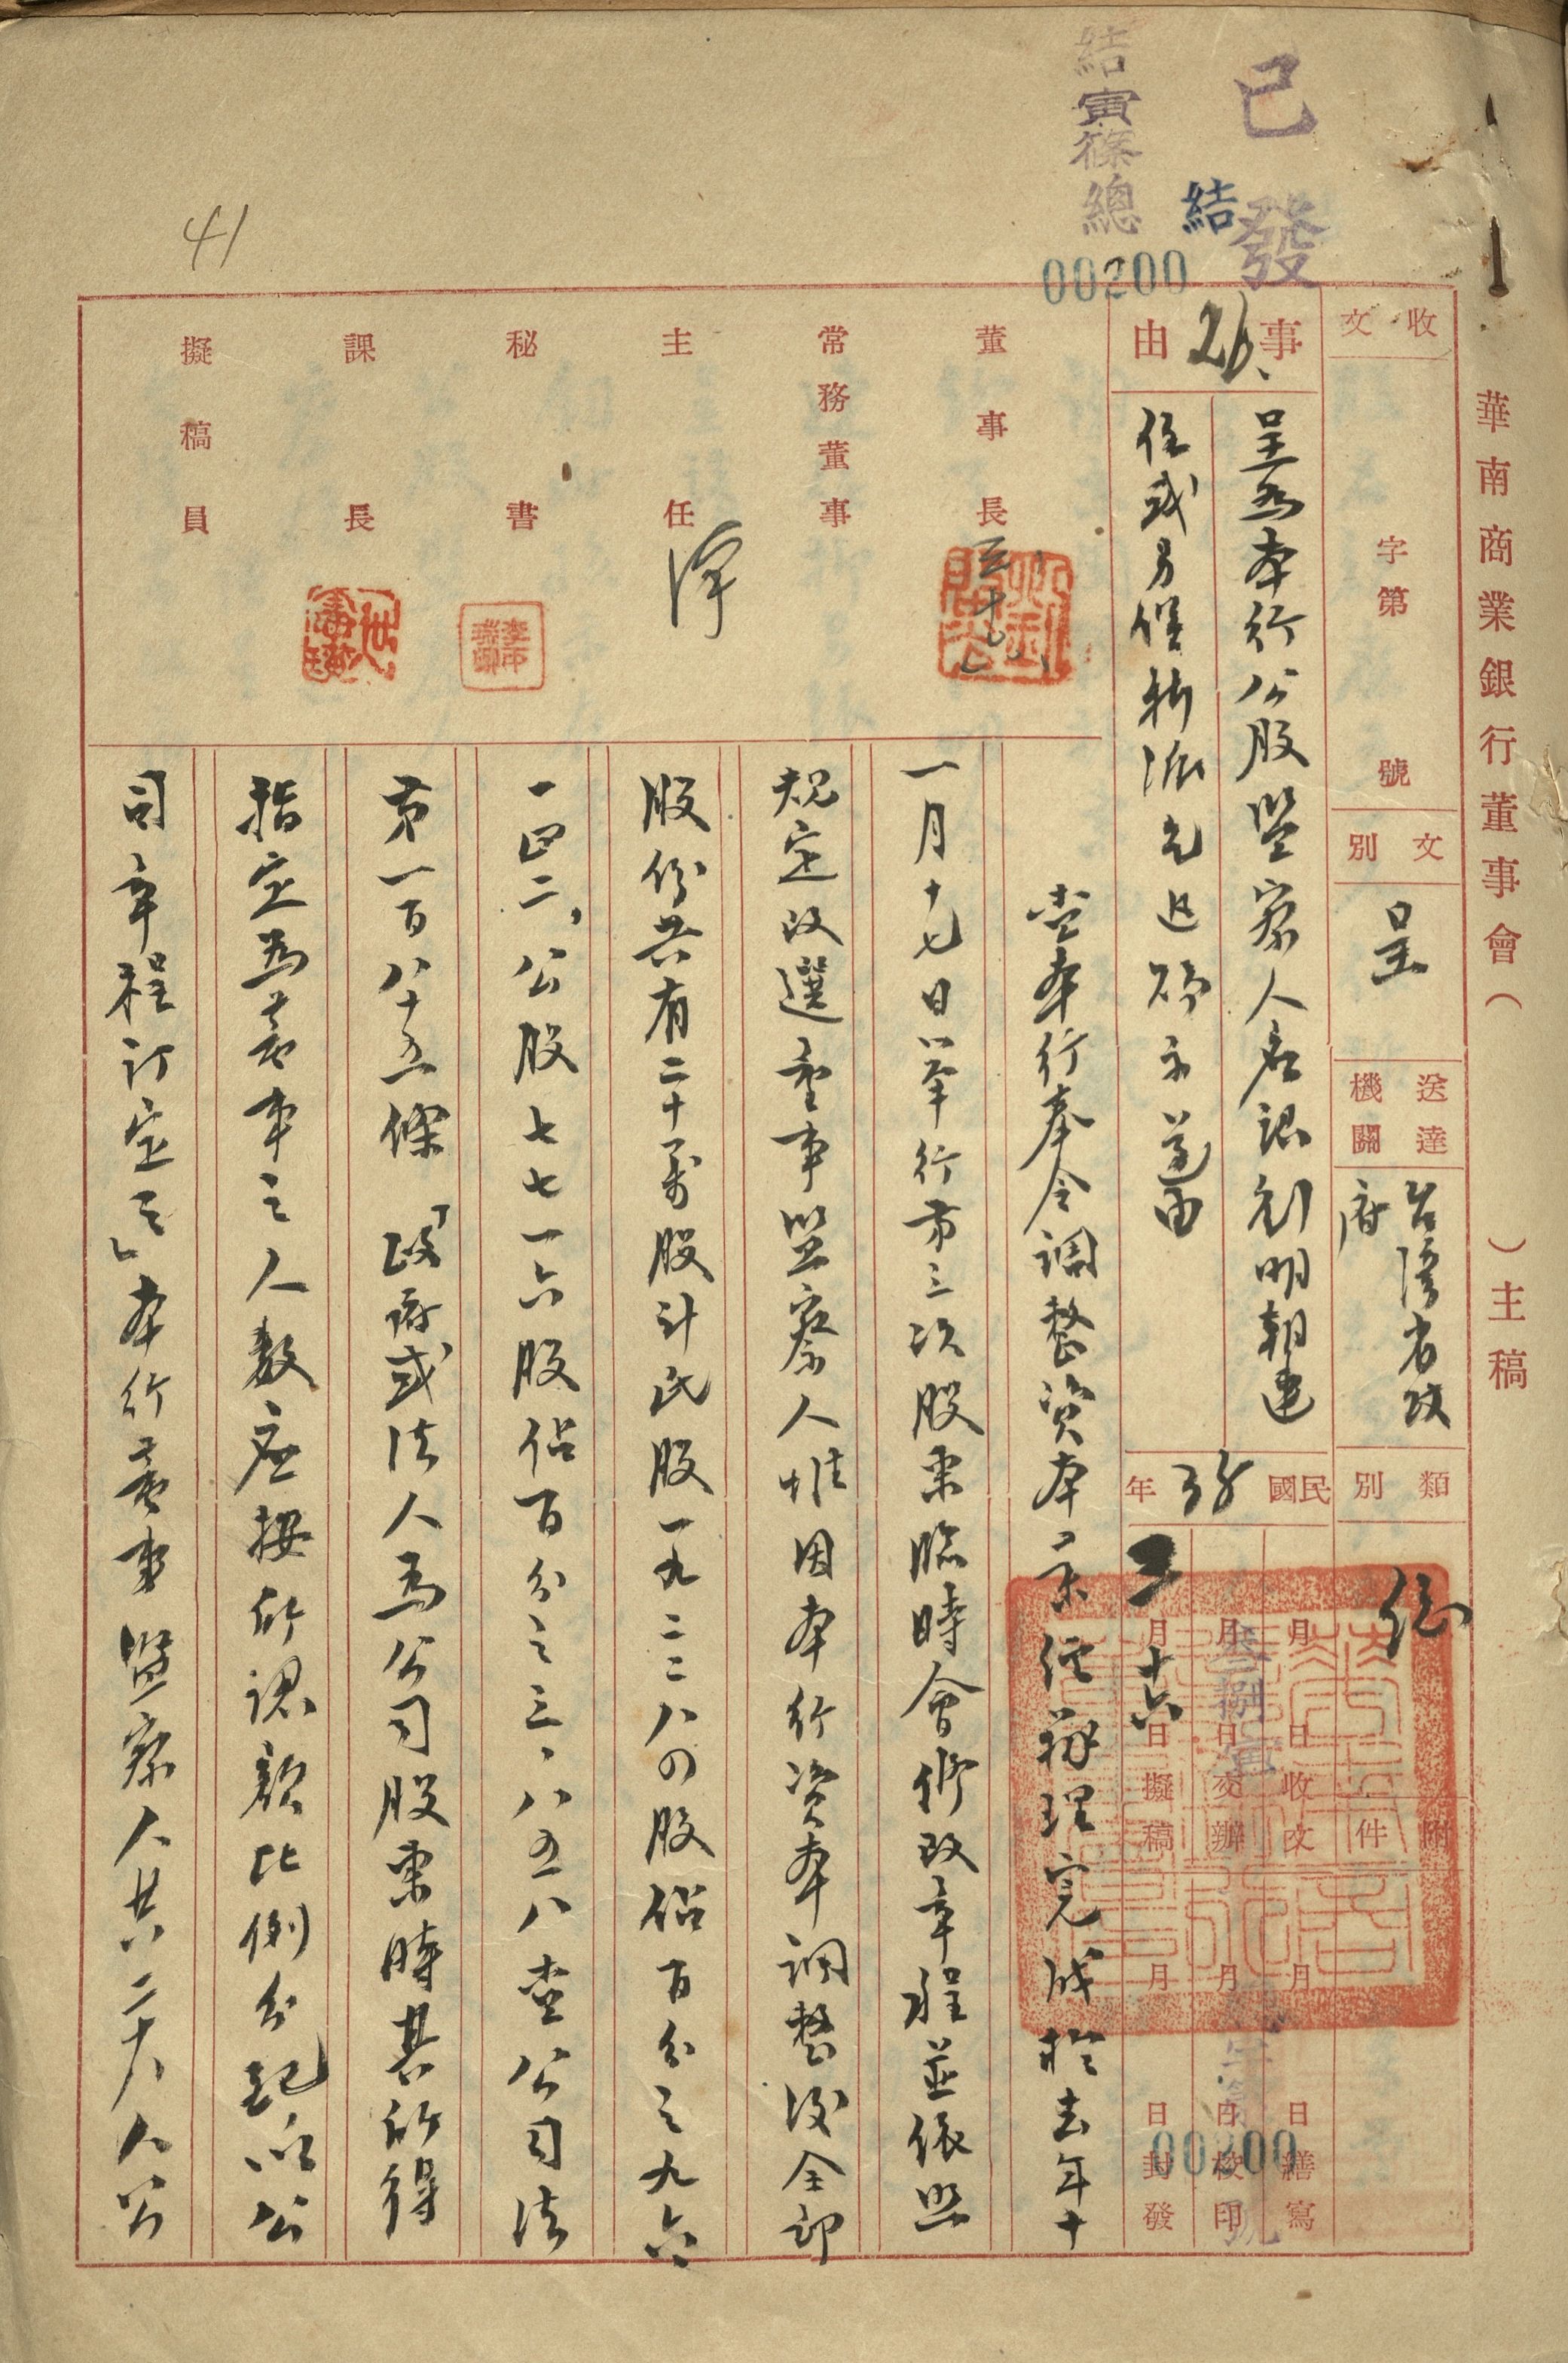 華南商業銀行董事會(　)主稿
收文
字第　號
文別
呈
送達機關
台灣省政
府
類別
附件
事由
26.
呈為本行公股監察人名認劉明朝連
任或另僅新派乞迅賜示遵由
民國38年
三月十六日擬稿
月　日交辦
月　日收文
月　日繕寫
月　日校印
月　日封發
董事長
常務董事
主任
秘書
課長
擬稿員
查本行奉令調整資本業經辦理完成於去年十
一月十七日舉行第三次股東臨時會修改章程並依照
規定改選董事監察人惟因本行資本調整後全部
股份共有二十萬股計民股一九二二八四股佔百分之九六
一四二,公股七七一六股佔百分之三、八五八查公司法
第一百八十五條「政府或法人為公司股東時其所得
指定為董事之人數應按所認額比例分配以公
司章程訂定之」本行董事監察人共二十八人公
已發
結
結寅篠總
00200
00200
41